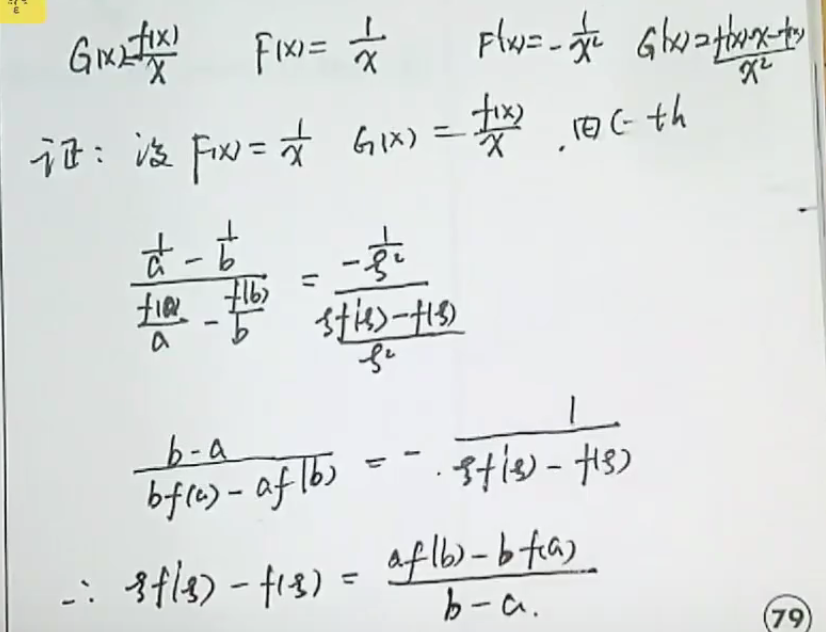 G(x)=f(x)/x F(x)=1/x F'(x)=-1/x² G'(x)=(f'(x)·x-f(x))/x²
证：设 F(x)=1/x G(x)=f(x)/x . 由C-th
(1/a - 1/b)/(f(a)/a - f(b)/b) = (-1/ξ²)/((ξf'(ξ)-f(ξ))/ξ²)
(b-a)/(bf(a)-af(b)) = - 1/(ξf'(ξ)-f(ξ))
∴ ξf'(ξ)-f(ξ) = (af(b)-bf(a))/(b-a).
79